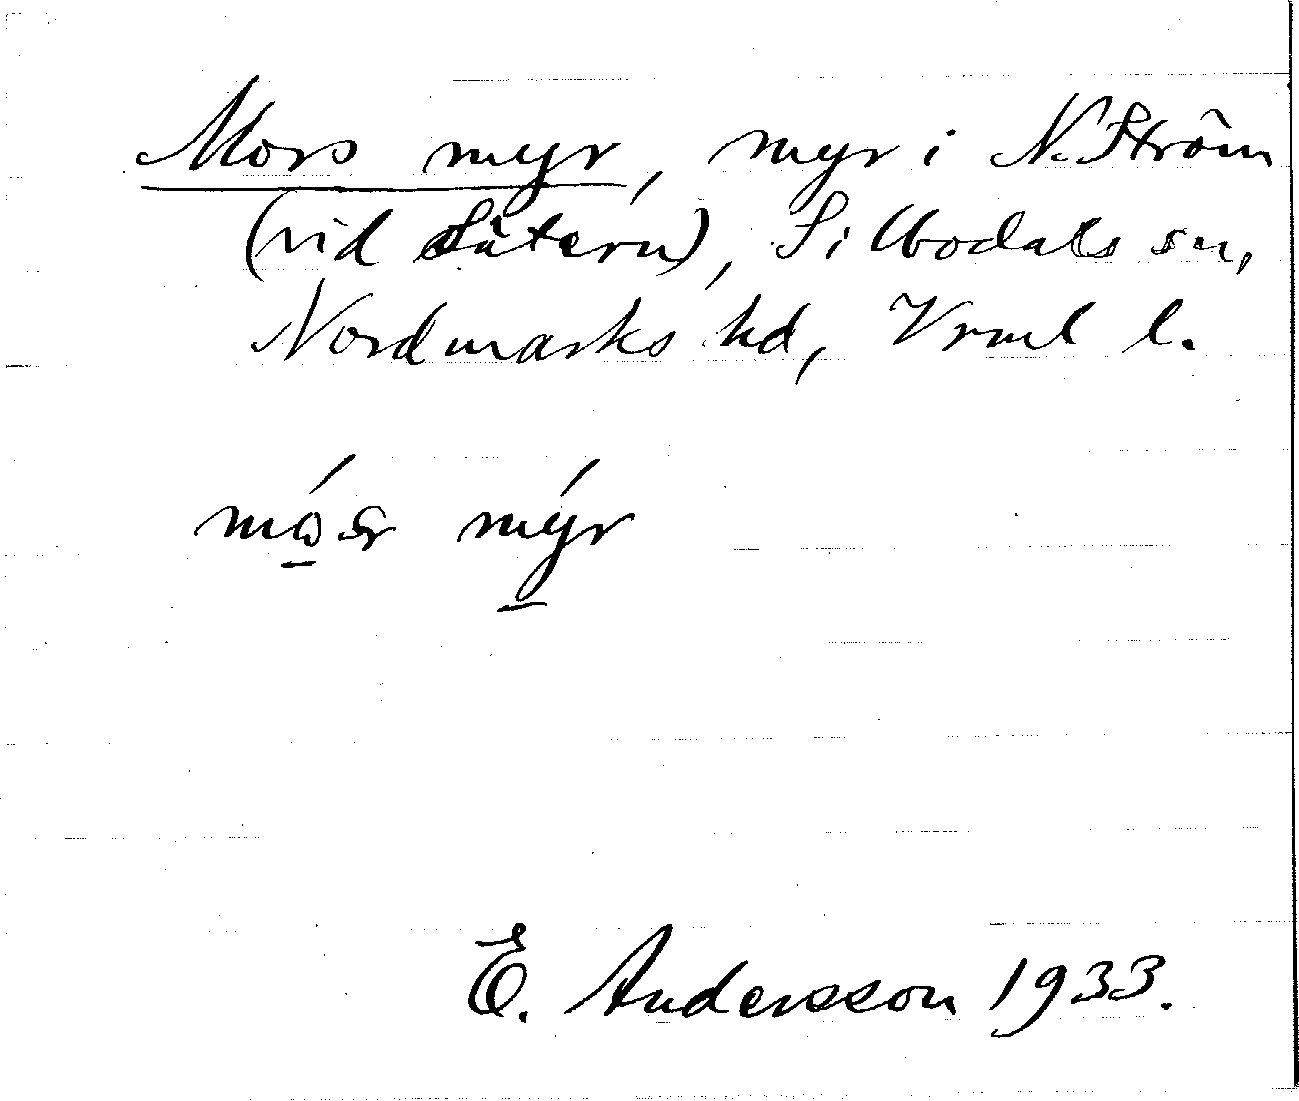 Mors myr, myr i N. Ström
(vid Sätern), Silbodals sn,
Nordmarks hd, Vrml l.
myr
E. Andersson 1933.